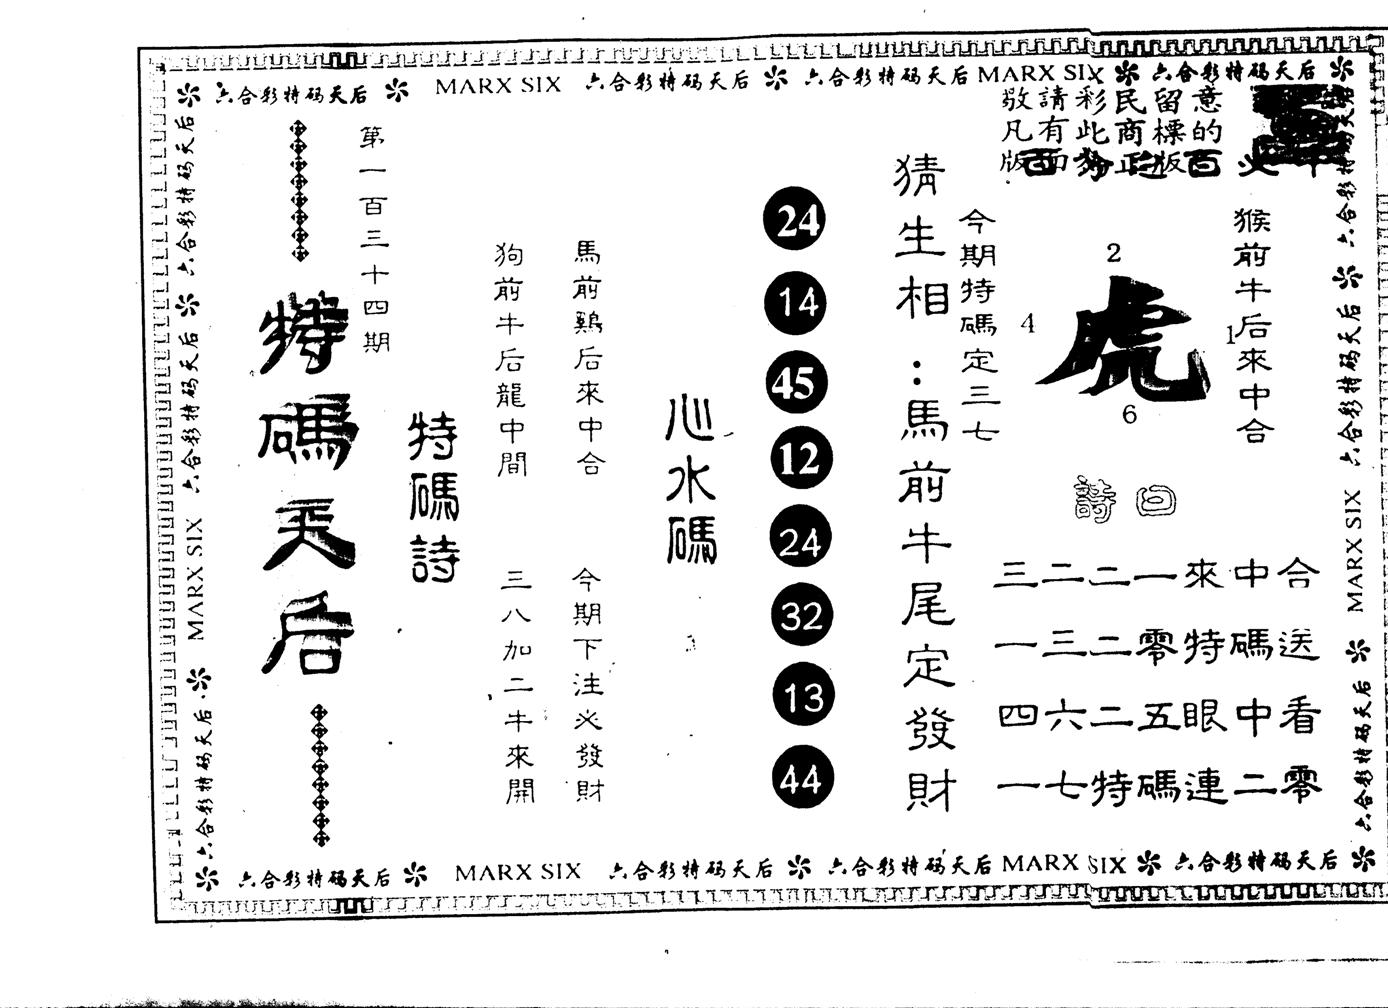 六合彩特码天后 MARX SIX 六合彩特码天后 六合彩特码天后 MARX SIX 六合彩特码天后
敬請彩民留意
凡有此商標的
版面為正版
百分之百
第一百三十四期
特碼天后
特碼詩
狗前牛后龍中間
三八加二牛來開
馬前鷄后來中合
今期下注必發財
心水碼
24
14
45
12
24
32
13
44
猜生相:馬前牛尾定發財
今期特碼定三七
2
4
虎
1
6
猴前牛后來中合
詩曰
三二二一來中合
一三二零特碼送
四六二五眼中看
一七特碼連二零
六合彩特码天后 六合彩特码天后 MARX SIX 六合彩特码天后
六合彩特码天后 六合彩特码天后 MARX SIX 六合彩特码天后
六合彩特码天后 MARX SIX 六合彩特码天后 六合彩特码天后 MARX SIX 六合彩特码天后